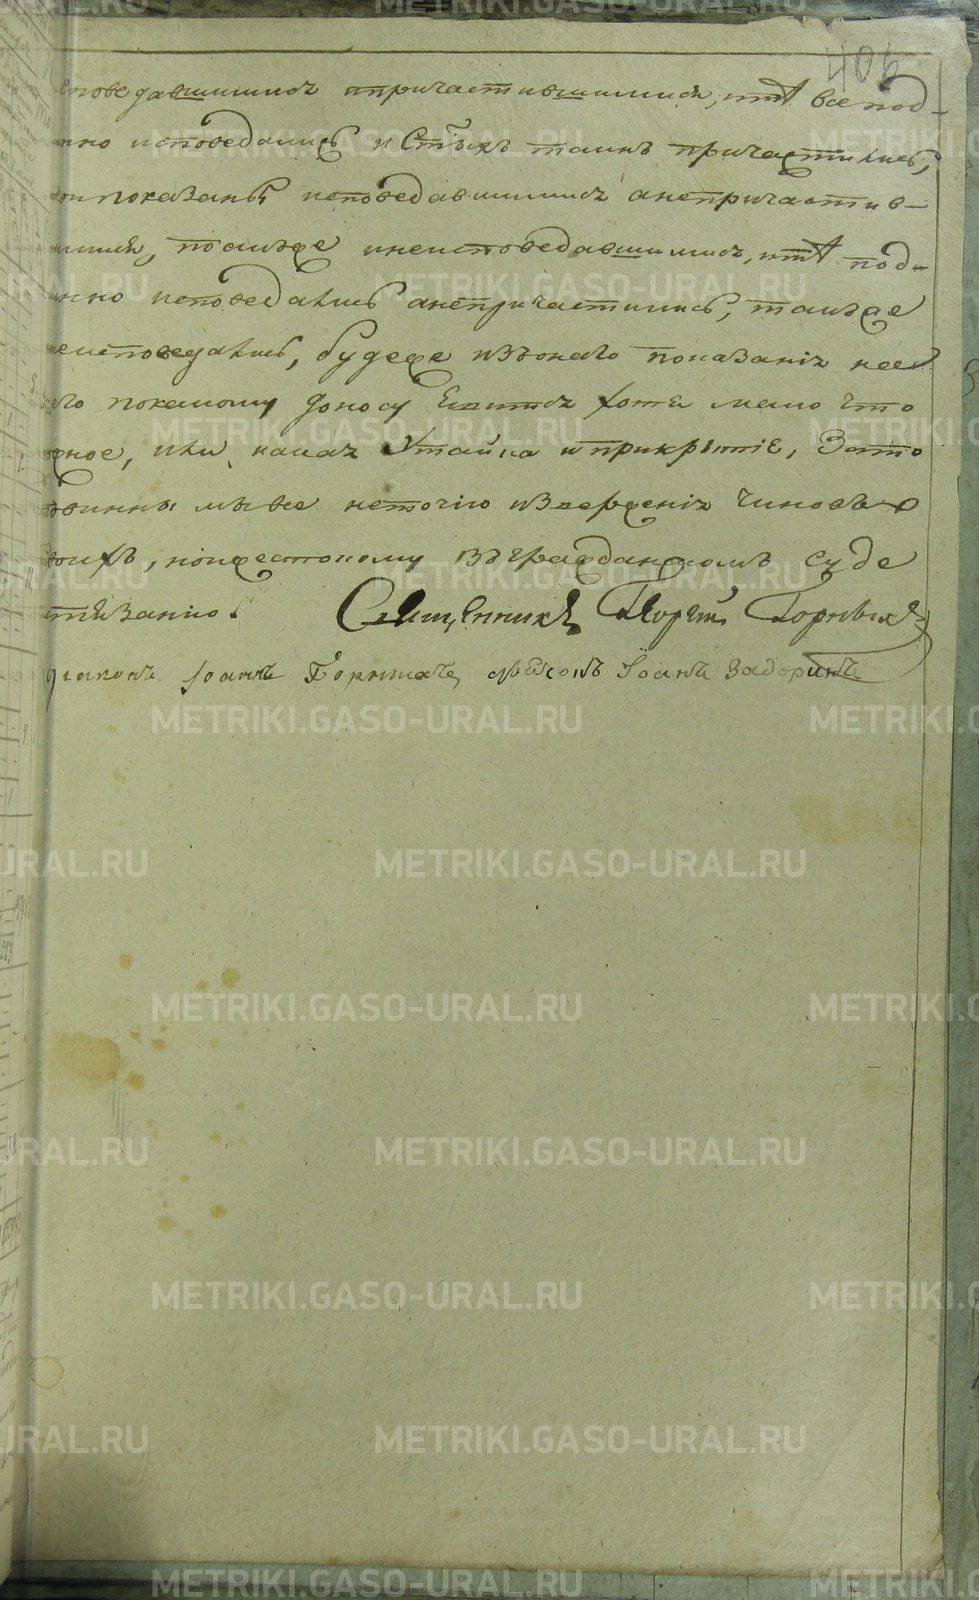 406
споведавшимися ипричастившимися, итѣ все под-
нно исповедались и Стыхъ таинъ причастились,
кои показаны исповедавшимися анепричастив-
шимися, потомже инеисповедавшимися, итѣ под-
инно исповедались анепричастились, такъже
неисповедались, будеже изъонаго показанія
его покакому доносу Явится хотя мало что
ложное, или какая Утайка иприкрытіе, Зато
повинны мы все неточію извержения Чиновъ
своихъ, ножестокому въгражданскомъ суде
тязанию.
Священникъ Георгий Горныхъ
диаконъ Іоаннъ Іоаннъ Задоринъ
METRIKI.GASO-URAL.RU